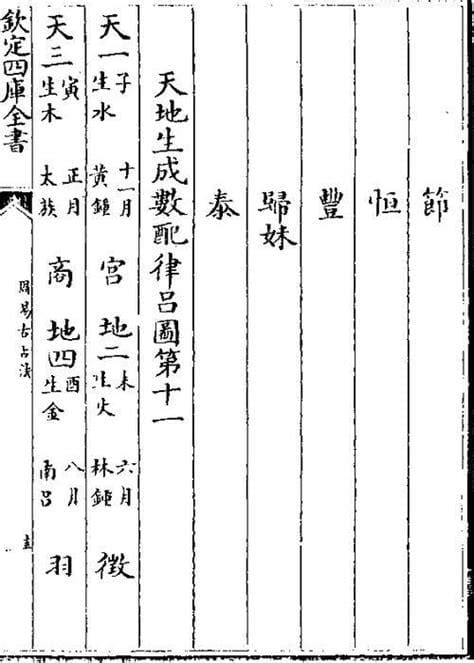 節
恒
豐
歸妹
泰
天地生成數配律呂圖第十一
天一 子生水 十一月黃鍾 宮 地二 未生火 六月林鍾 徵
天三 寅生木 正月太族 商 地四 酉生金 八月南呂 羽
欽定四庫全書
周易古占法